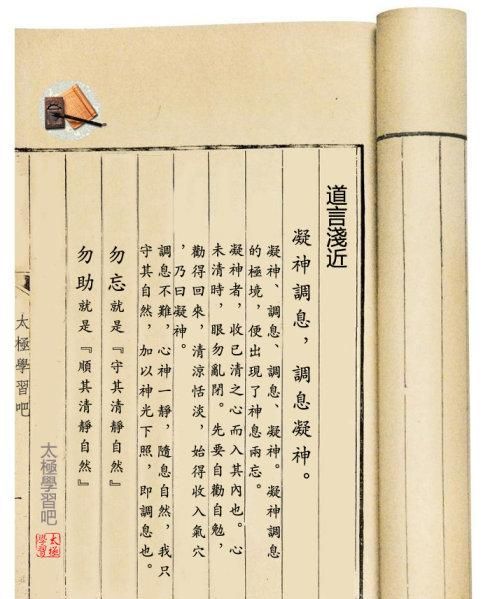 道言淺近
凝神調息，調息凝神。
凝神、調息、調息、凝神。凝神調息
的極境，便出現了神息兩忘。
凝神者，收已清之心而入其內也。心
未清時，眼勿亂閉。先要自勸自勉，
勸得回來，清涼恬淡，始得收入氣穴
，乃曰凝神。
調息不難，心神一靜，隨息自然，我只
守其自然，加以神光下照，即調息也。
勿忘就是『守其清靜自然』
勿助就是『順其清靜自然』
太極學習吧
太極學習吧
太極
學習